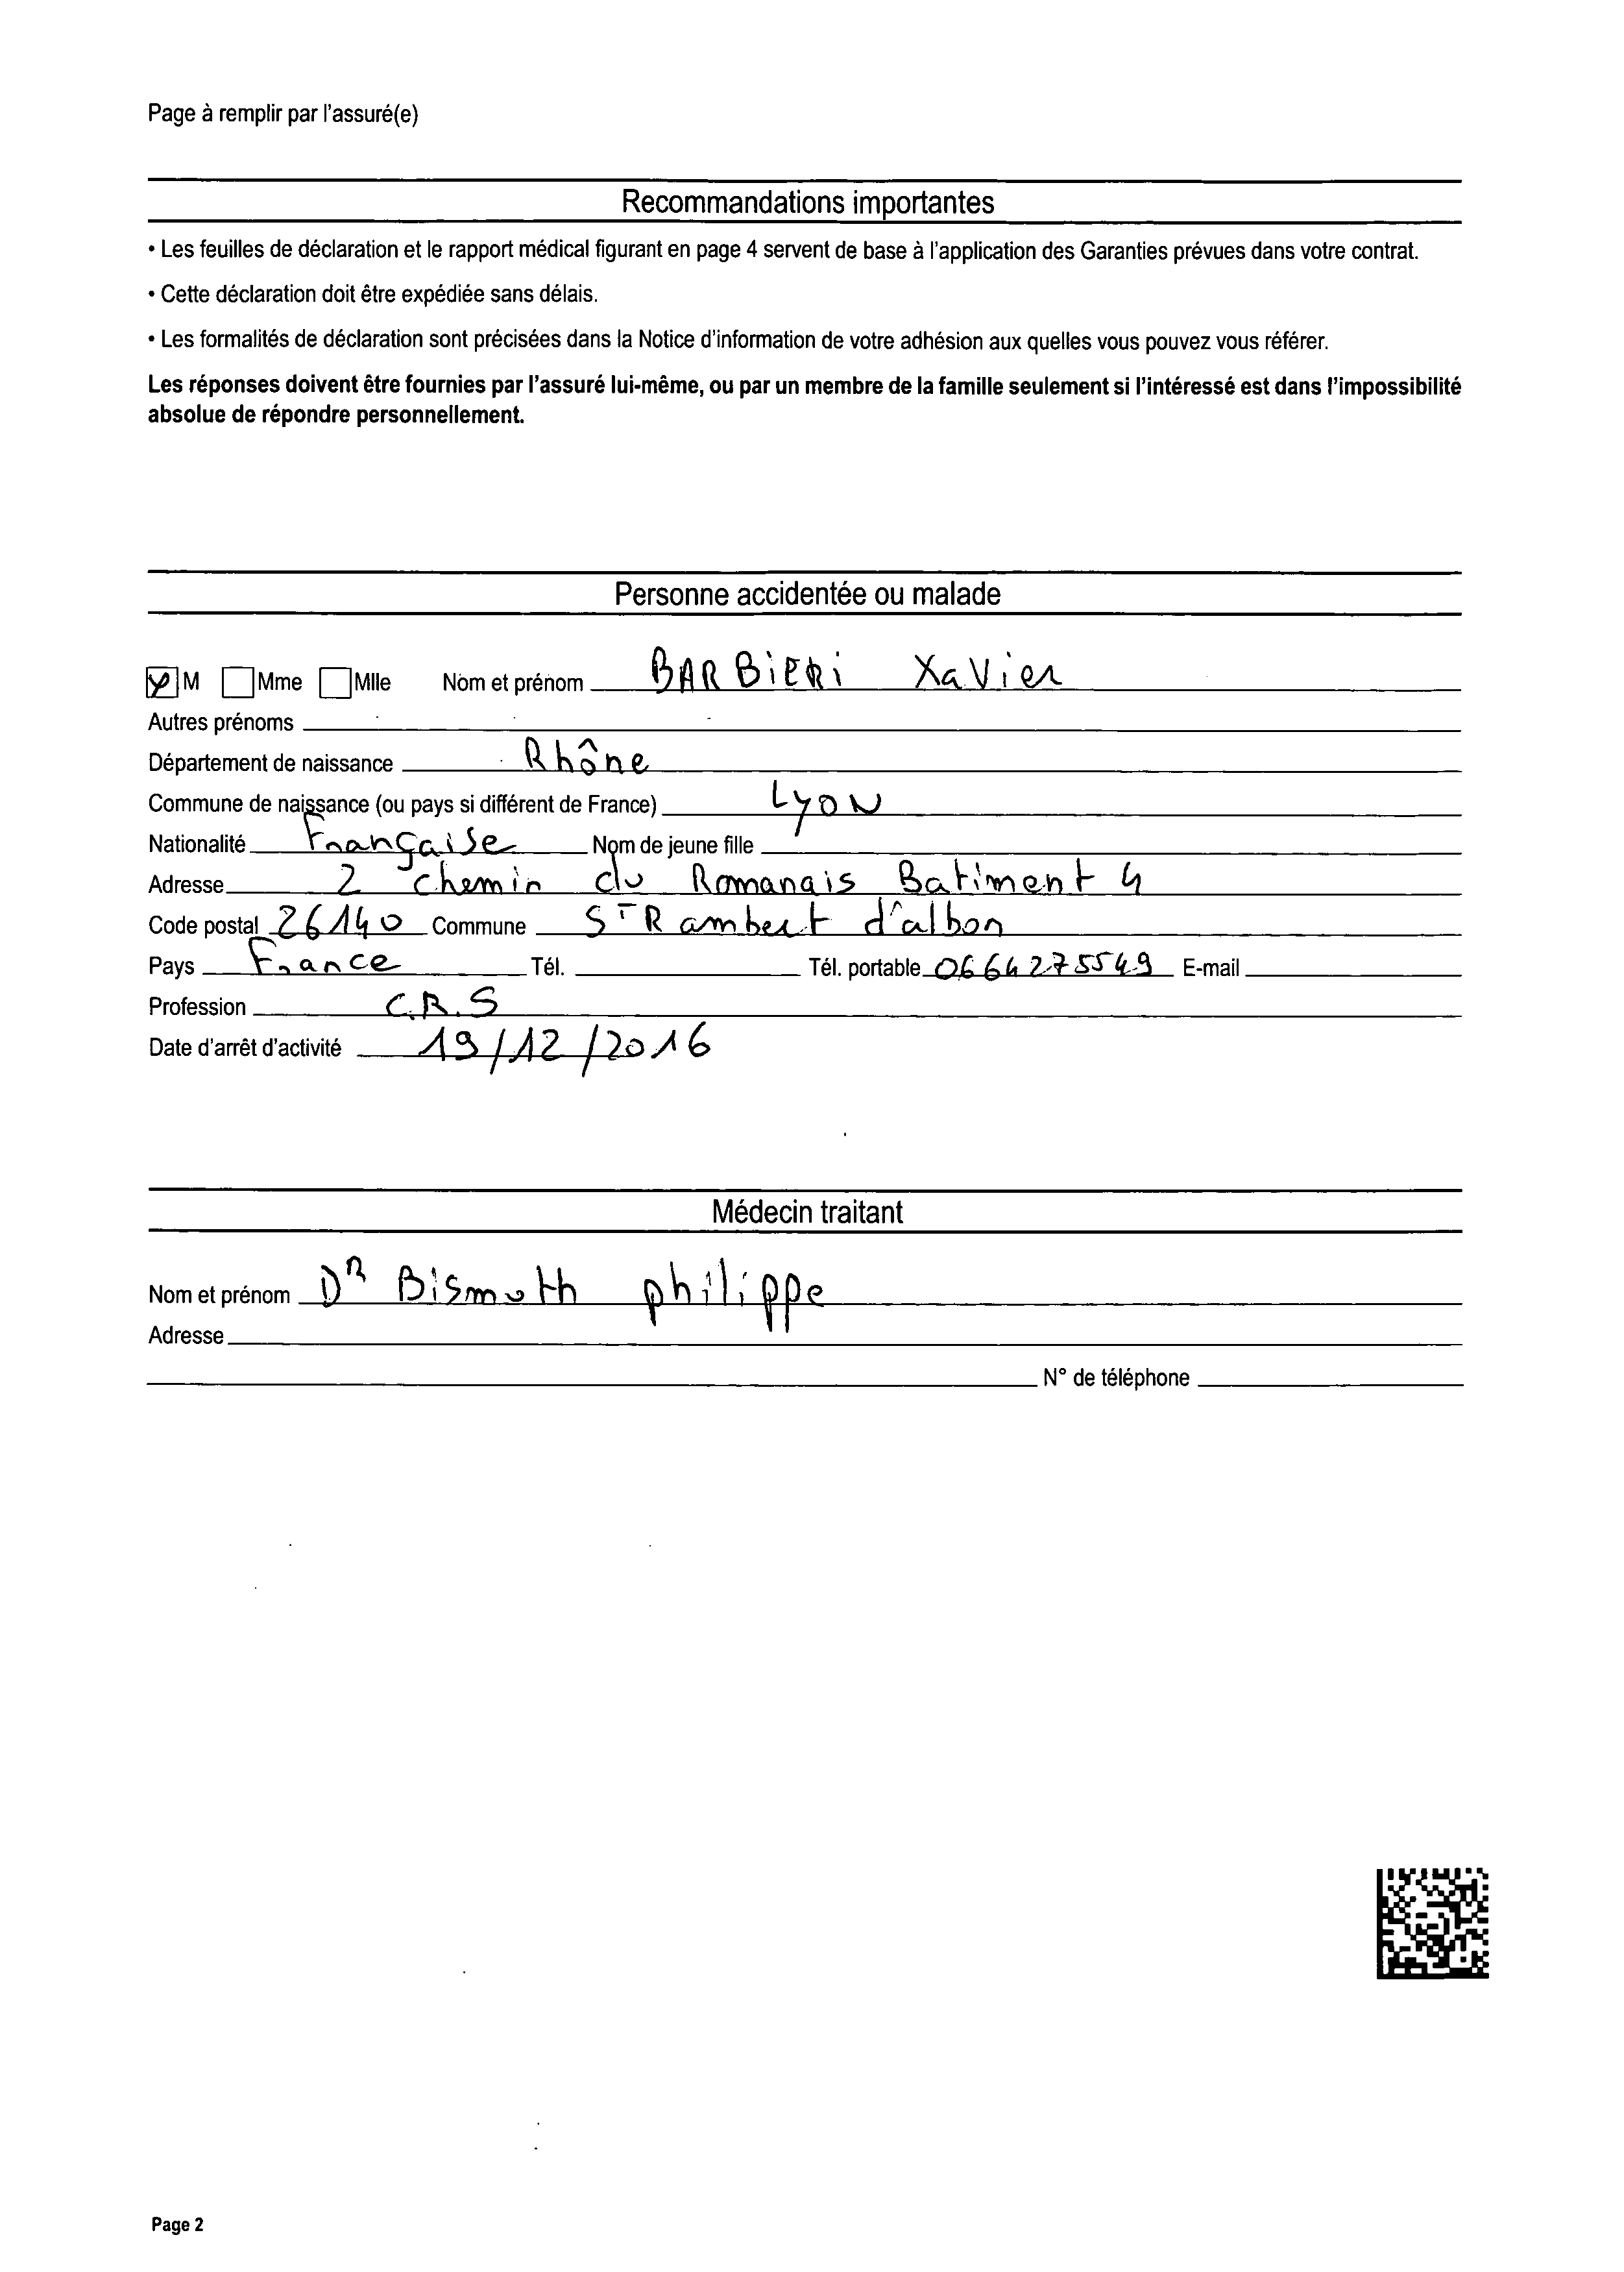 Page à remplir par l'assuré(e)
Recommandations importantes
• Les feuilles de déclaration et le rapport médical figurant en page 4 servent de base à l'application des Garanties prévues dans votre contrat.
• Cette déclaration doit être expédiée sans délais.
• Les formalités de déclaration sont précisées dans la Notice d'information de votre adhésion aux quelles vous pouvez vous référer.
Les réponses doivent être fournies par l'assuré lui-même, ou par un membre de la famille seulement si l'intéressé est dans l'impossibilité
absolue de répondre personnellement.
Personne accidentée ou malade
M Mme Mlle Nom et prénom BARBiERi XaVier
Autres prénoms
Département de naissance Rhône
Commune de naissance (ou pays si différent de France) LyON
Nationalité Française Nom de jeune fille
Adresse 2 chemin du Romanais Batiment 4
Code postal 26140 Commune ST Rambert d'albon
Pays France Tél. Tél. portable 0664275549 E-mail
Profession C.R.S
Date d'arrêt d'activité 19/12/2016
Médecin traitant
Nom et prénom DR Bismuth philippe
Adresse
N° de téléphone
Page 2